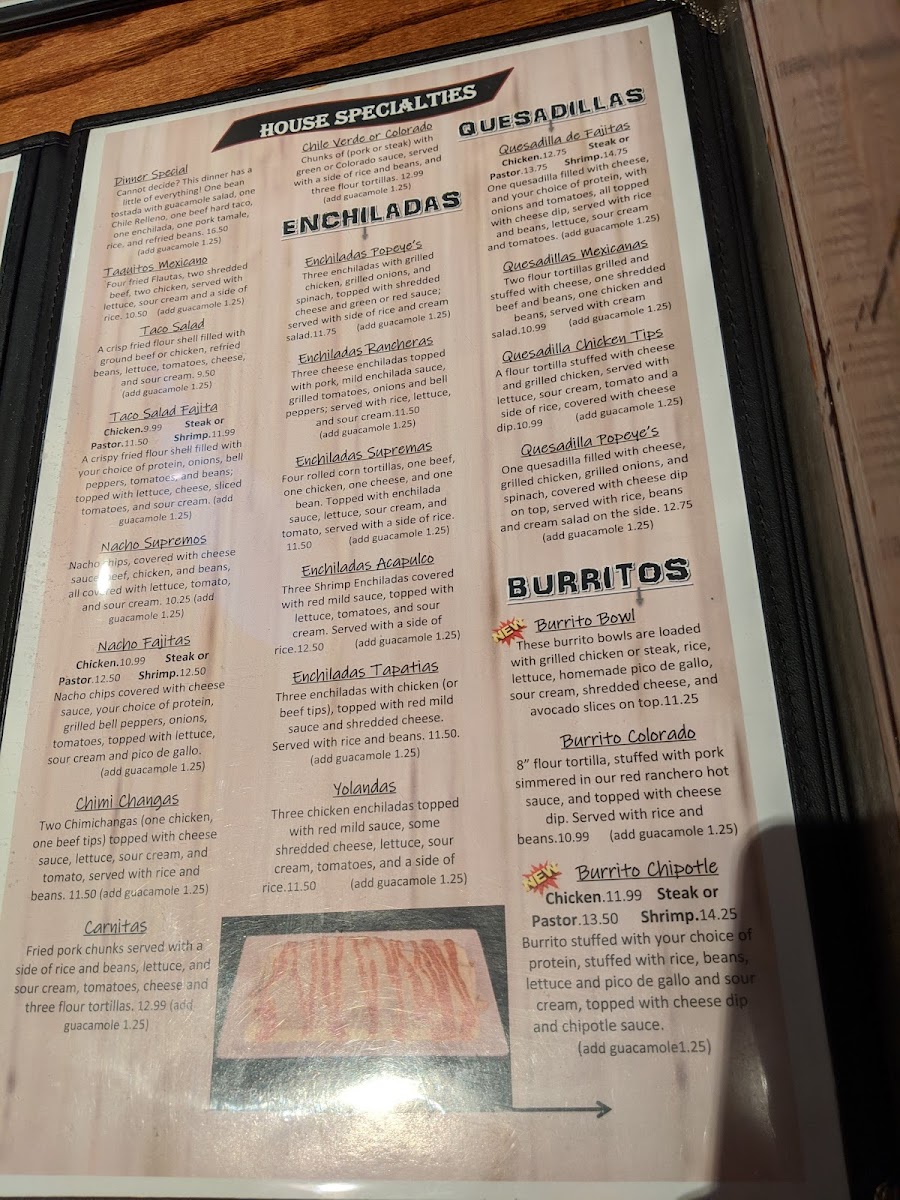 HOUSE SPECIALTIES
Dinner Special
Cannot decide? This dinner has a
little of everything! One bean
tostada with guacamole salad, one
Chile Relleno, one beef hard taco,
one enchilada, one pork tamale,
rice, and refried beans. 16.50
(add guacamole 1.25)
Taquitos Mexicano
Four fried Flautas, two shredded
beef, two chicken, served with
lettuce, sour cream and a side of
rice. 10.50 (add guacamole 1.25)
Taco Salad
A crisp fried flour shell filled with
ground beef or chicken, refried
beans, lettuce, tomatoes, cheese,
and sour cream. 9.50
(add guacamole 1.25)
Taco Salad Fajita
Chicken.9.99 Steak or
Pastor.11.50 Shrimp.11.99
A crispy fried flour shell filled with
your choice of protein, onions, bell
peppers, tomatoes, and beans;
topped with lettuce, cheese, sliced
tomatoes, and sour cream. (add
guacamole 1.25)
Nacho Supremos
Nacho chips, covered with cheese
sauce, beef, chicken, and beans,
all covered with lettuce, tomato,
and sour cream. 10.25 (add
guacamole 1.25)
Nacho Fajitas
Chicken.10.99 Steak or
Pastor.12.50 Shrimp.12.50
Nacho chips covered with cheese
sauce, your choice of protein,
grilled bell peppers, onions,
tomatoes, topped with lettuce,
sour cream and pico de gallo.
(add guacamole 1.25)
Chimi Changas
Two Chimichangas (one chicken,
one beef tips) topped with cheese
sauce, lettuce, sour cream, and
tomato, served with rice and
beans. 11.50 (add guacamole 1.25)
Carnitas
Fried pork chunks served with a
side of rice and beans, lettuce, and
sour cream, tomatoes, cheese and
three flour tortillas. 12.99 (add
guacamole 1.25)
Chile Verde or Colorado
Chunks of (pork or steak) with
green or Colorado sauce, served
with a side of rice and beans, and
three flour tortillas. 12.99
(add guacamole 1.25)
ENCHILADAS
Enchiladas Popeye's
Three enchiladas with grilled
chicken, grilled onions, and
spinach, topped with shredded
cheese and green or red sauce;
served with side of rice and cream
salad.11.75 (add guacamole 1.25)
Enchiladas Rancheras
Three cheese enchiladas topped
with pork, mild enchilada sauce,
grilled tomatoes, onions and bell
peppers; served with rice, lettuce,
and sour cream.11.50
(add guacamole 1.25)
Enchiladas Supremas
Four rolled corn tortillas, one beef,
one chicken, one cheese, and one
bean. Topped with enchilada
sauce, lettuce, sour cream, and
tomato, served with a side of rice.
11.50 (add guacamole 1.25)
Enchiladas Acapulco
Three Shrimp Enchiladas covered
with red mild sauce, topped with
lettuce, tomatoes, and sour
cream. Served with a side of
rice.12.50 (add guacamole 1.25)
Enchiladas Tapatias
Three enchiladas with chicken (or
beef tips), topped with red mild
sauce and shredded cheese.
Served with rice and beans. 11.50.
(add guacamole 1.25)
Yolandas
Three chicken enchiladas topped
with red mild sauce, some
shredded cheese, lettuce, sour
cream, tomatoes, and a side of
rice.11.50 (add guacamole 1.25)
QUESADILLAS
Quesadilla de Fajitas
Chicken.12.75 Steak or
Pastor.13.75 Shrimp.14.75
One quesadilla filled with cheese,
and your choice of protein, with
onions and tomatoes, all topped
with cheese dip, served with rice
and beans, lettuce, sour cream
and tomatoes. (add guacamole 1.25)
Quesadillas Mexicanas
Two flour tortillas grilled and
stuffed with cheese, one shredded
beef and beans, one chicken and
beans, served with cream
salad.10.99 (add guacamole 1.25)
Quesadilla Chicken Tips
A flour tortilla stuffed with cheese
and grilled chicken, served with
lettuce, sour cream, tomato and a
side of rice, covered with cheese
dip.10.99 (add guacamole 1.25)
Quesadilla Popeye's
One quesadilla filled with cheese,
grilled chicken, grilled onions, and
spinach, covered with cheese dip
on top, served with rice, beans
and cream salad on the side. 12.75
(add guacamole 1.25)
BURRITOS
NEW Burrito Bowl
These burrito bowls are loaded
with grilled chicken or steak, rice,
lettuce, homemade pico de gallo,
sour cream, shredded cheese, and
avocado slices on top.11.25
Burrito Colorado
8" flour tortilla, stuffed with pork
simmered in our red ranchero hot
sauce, and topped with cheese
dip. Served with rice and
beans.10.99 (add guacamole 1.25)
NEW Burrito Chipotle
Chicken.11.99 Steak or
Pastor.13.50 Shrimp.14.25
Burrito stuffed with your choice of
protein, stuffed with rice, beans,
lettuce and pico de gallo and sour
cream, topped with cheese dip
and chipotle sauce.
(add guacamole1.25)